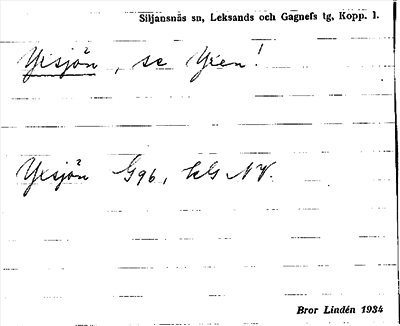 Siljansnäs sn, Leksands och Gagnefs tg, Kopp. l.
Yxsjön, se Yxen!
Yxsjön G96, kG NV.
Bror Lindén 1934